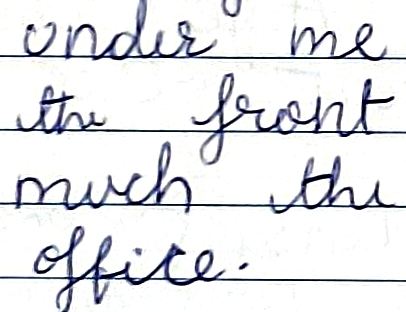 under me
the front
much the
office.